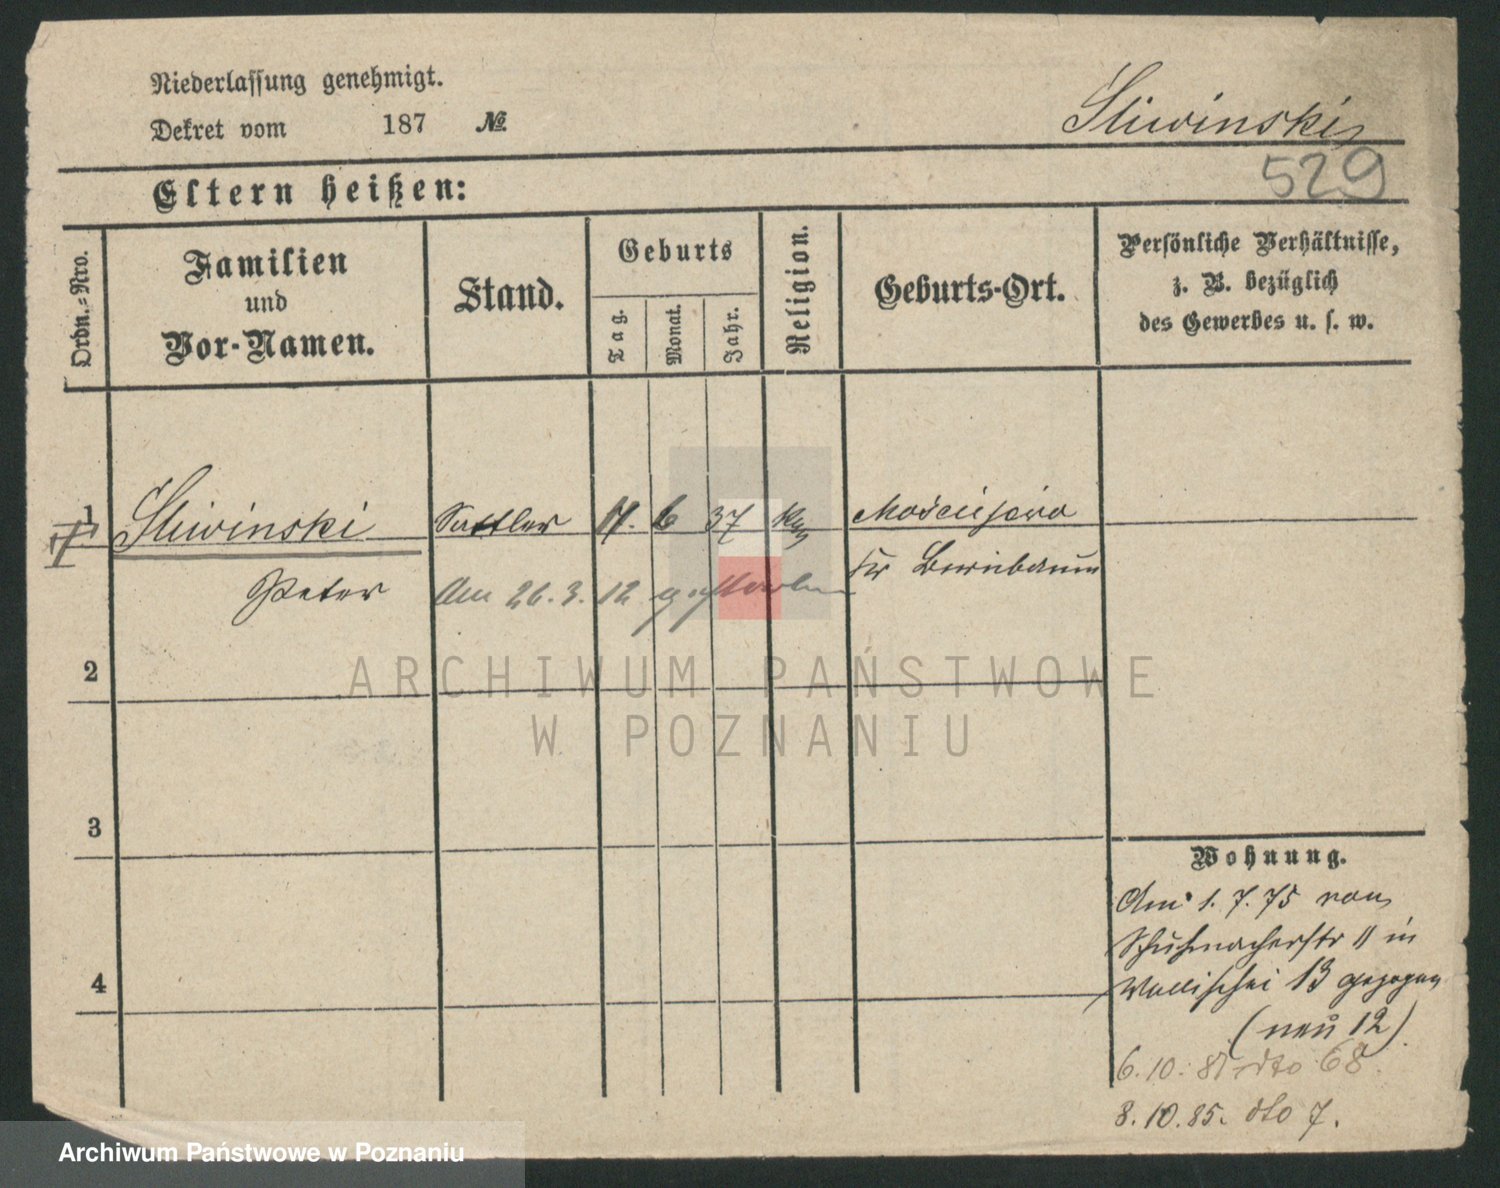 Niederlassung genehmigt.
Dekret vom 187 No.
Śliwinski
529
Eltern heißen:
Ordn.-Nro.
Familien
und
Vor-Namen.
Stand.
Geburts
Tag.
Monat.
Jahr.
Religion.
Geburts-Ort.
Persönliche Verhältnisse,
z. B. bezüglich
des Gewerbes u. s. w.
1 Śliwinski Sattler 17. 6 37
Peter
Kr Birnbaum
Am 26. 3. 12 gestorben
2
ARCHIWUM PAŃSTWOWE
W POZNANIU
3
4
Wohnung.
Am 1. 7. 75 von
Schuhmacherstr 11 in
Wallischei 13 gezogen
(neu 12)
6. 10. 81 dto 68.
8. 10. 85. dto 7.
Archiwum Państwowe w Poznaniu